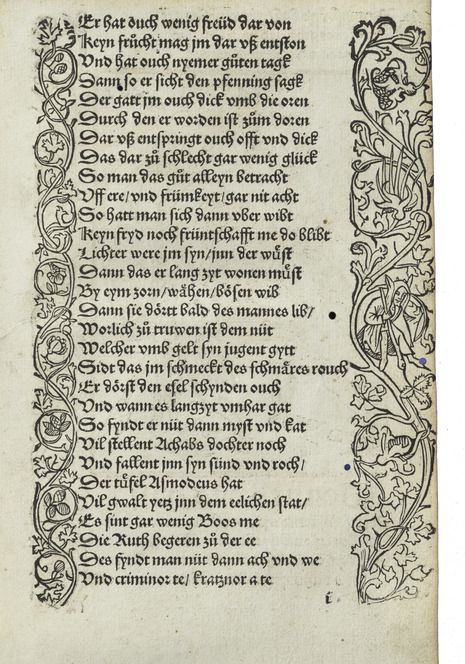 Er hat ouch wenig freüd dar von
Keyn frücht mag jm dar vß entston
Vnd hat ouch nyemer gůten tagk
Dann so er sicht den pfenning sagk
Der gatt jm ouch dick vmb die oren
Durch den er worden ist zům doren
Dar vß entspringt ouch offt vnd dick
Das dar zů schlecht gar wenig glück
So man das gůt alleyn betracht
Vff ere/ vnd frümkeyt/ gar nit acht
So hatt man sich dann vber wibt
Keyn fryd noch früntschafft me do blibt
Lichter were jm syn/ jnn der wůst
Dann das er lang zyt wonen můst
By eym zorn/ wähen/ bösen wib
Dann sie dörtt bald des mannes lib/
Worlich zů truwen ist dem nüt
Welcher vmb gelt syn jugent gytt
Sidt das jm schmeckt des schmäres rouch
Er dörst den esel schynden ouch
Vnd wann es langzyt vmhar gat
So fyndt er nüt dann myst vnd kat
Vil stellent Achabs dochter noch
Vnd fallent jnn syn sünd vnd roch/
Der tüfel Asmodeus hat
Vil gwalt yetz jnn dem eelichen stat/
Es sint gar wenig Boos me
Die Ruth begeren zů der ee
Des fyndt man nüt dann ach vnd we
Vnd criminor te/ kratznor a te
i